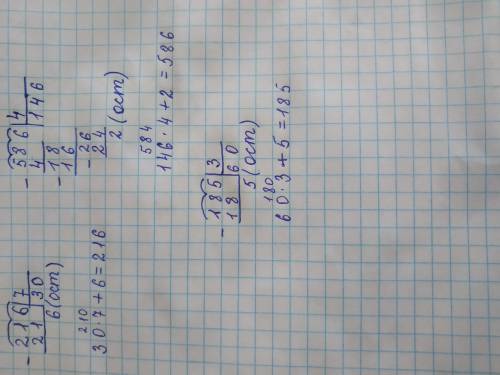 - 216 | 7
21 | 30
6 (ост)
210
30 · 7 + 6 = 216
- 586 | 4
4 | 146
- 18
16
- 26
24
2 (ост)
584
146 · 4 + 2 = 586
- 185 | 3
18 | 60
5 (ост)
180
60 · 3 + 5 = 185